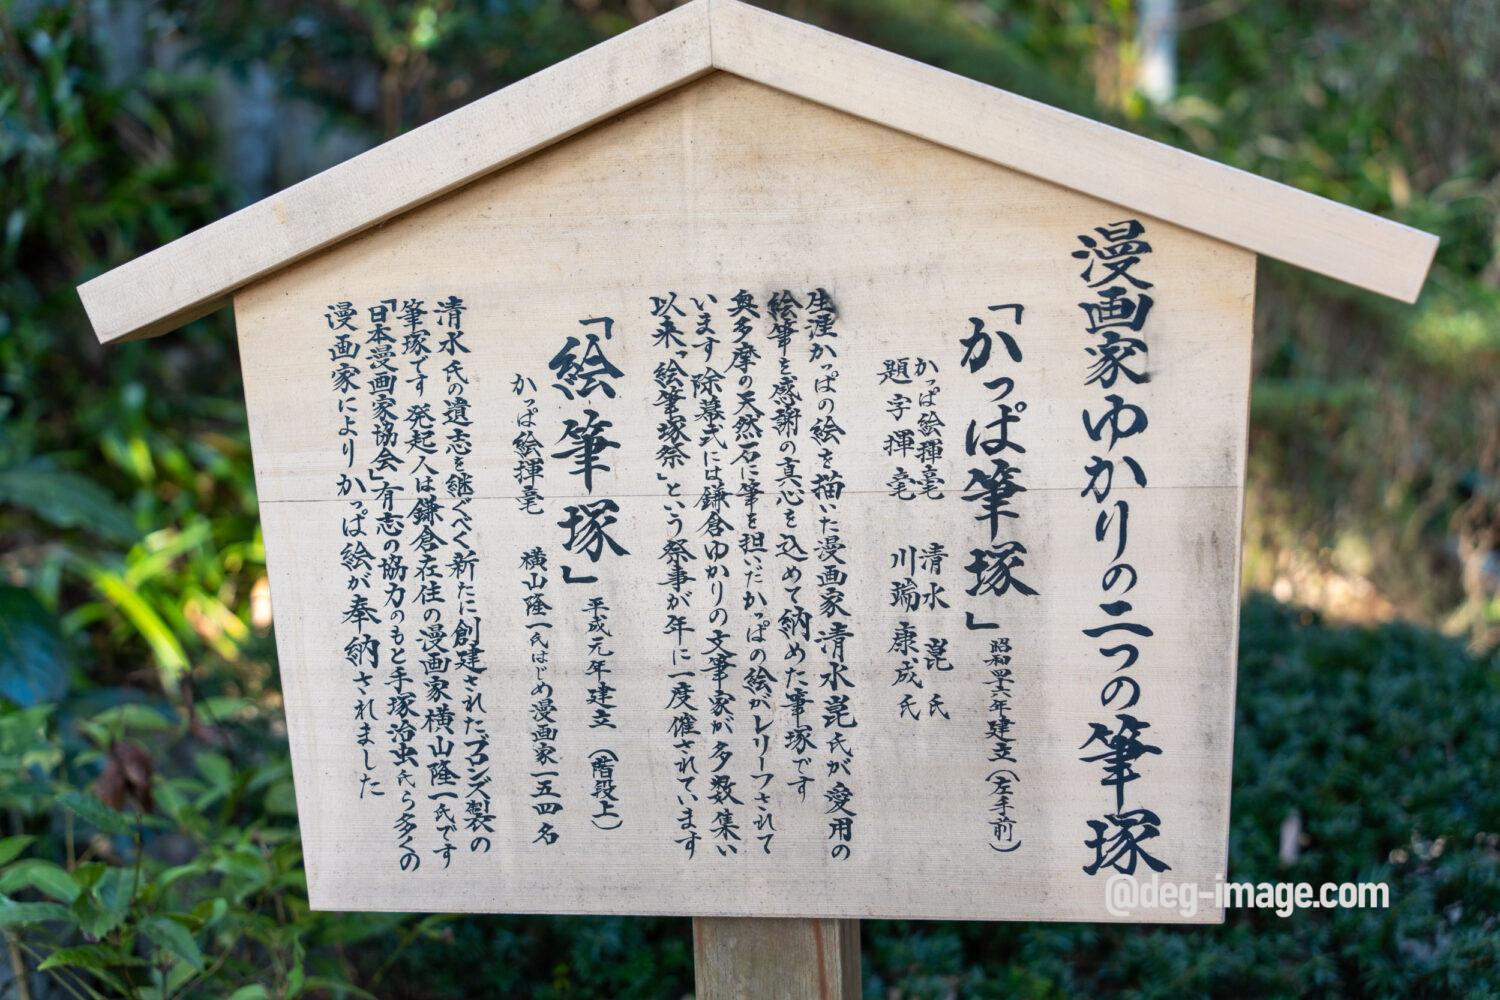 漫画家ゆかりの二つの筆塚
「かっぱ筆塚」昭和四十六年建立(左手前)
かっぱ絵揮毫 清水崑氏
題字揮毫 川端康成氏
生涯かっぱの絵を描いた漫画家清水崑氏が愛用の
絵筆を感謝の真心を込めて納めた筆塚です
奥多摩の天然石に筆を担いたかっぱの絵がレリーフされて
います 除幕式には鎌倉ゆかりの文筆家が多数集い
以来「絵筆塚祭」という祭事が年に一度催されています
「絵筆塚」平成元年建立(階段上)
かっぱ絵揮毫 横山隆一氏はじめ漫画家一五四名
清水氏の遺志を継ぐべく新たに創建されたブロンズ製の
筆塚です 発起人は鎌倉在住の漫画家横山隆一氏です
「日本漫画家協会」有志の協力のもと手塚治虫氏ら多くの
漫画家によりかっぱ絵が奉納されました
@deg-image.com